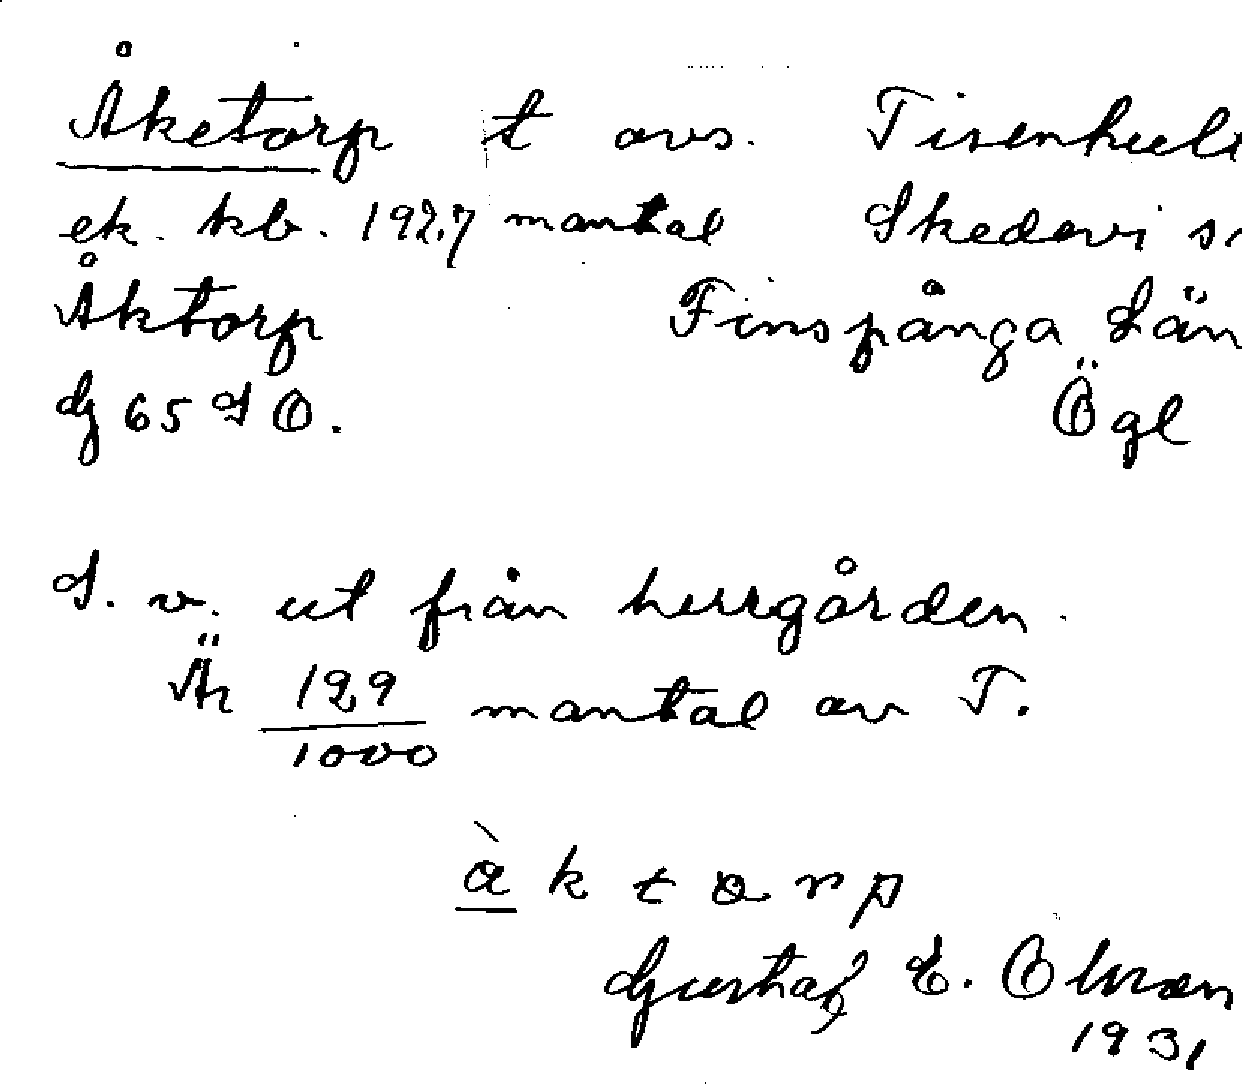 Åketorp t avs. Tisenhult
ek. kb. 1927 mantal Skedevi s
Åktorp Finspånga län
Gj 65 SO. Ögl
S. v. ut från herrgården.
Är 129/1000 mantal av T.
à k t o r p
Gustaf E. Ölman
1931